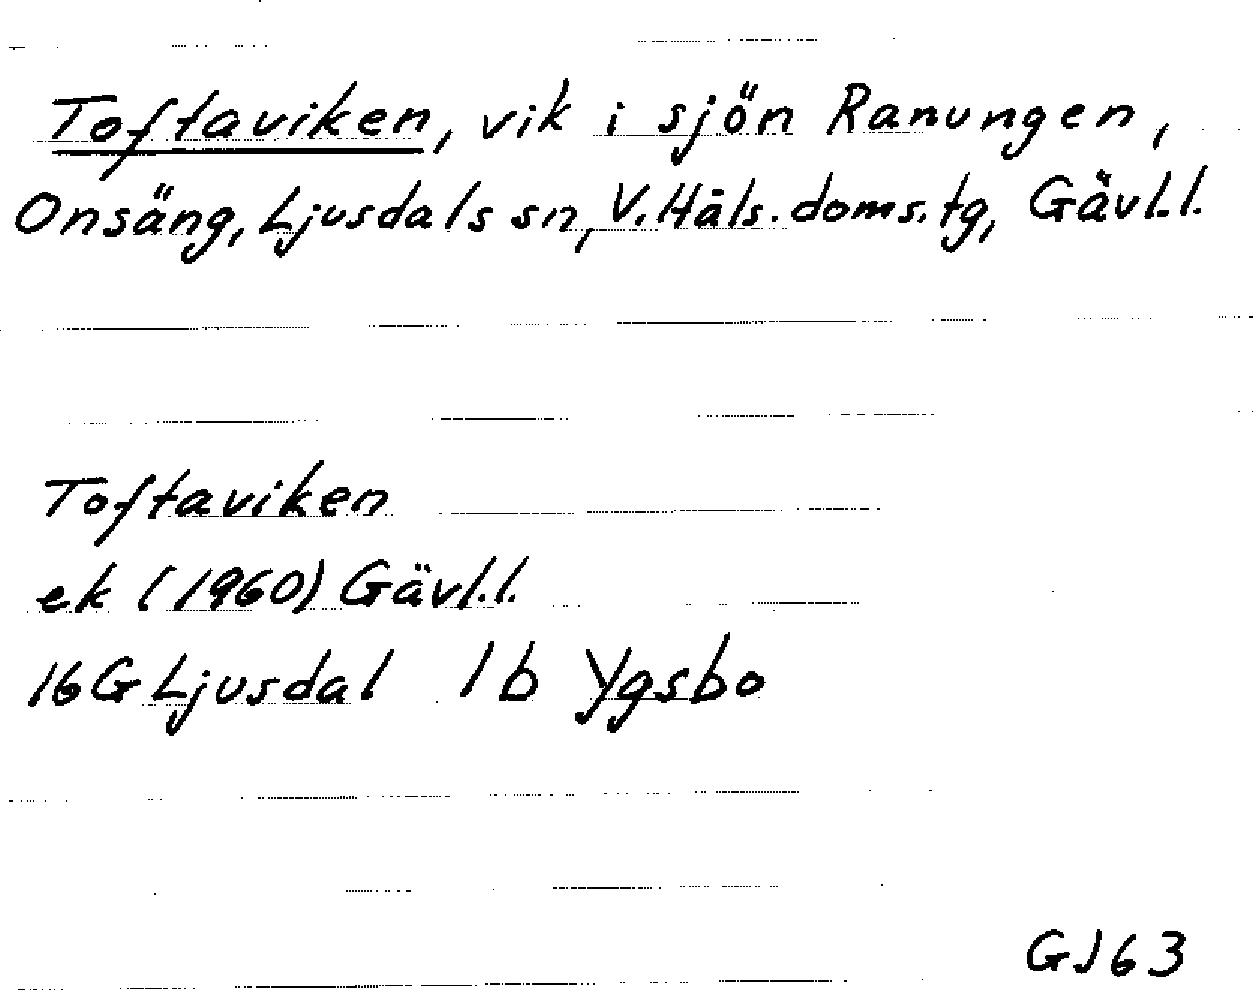 Toftaviken, vik i sjön Ranungen,
Onsäng, Ljusdals sn, V. Häls. doms. tg, Gävl.l.
Toftaviken
ek (1960) Gävl.l.
16G Ljusdal 1b Ygsbo
GJ63